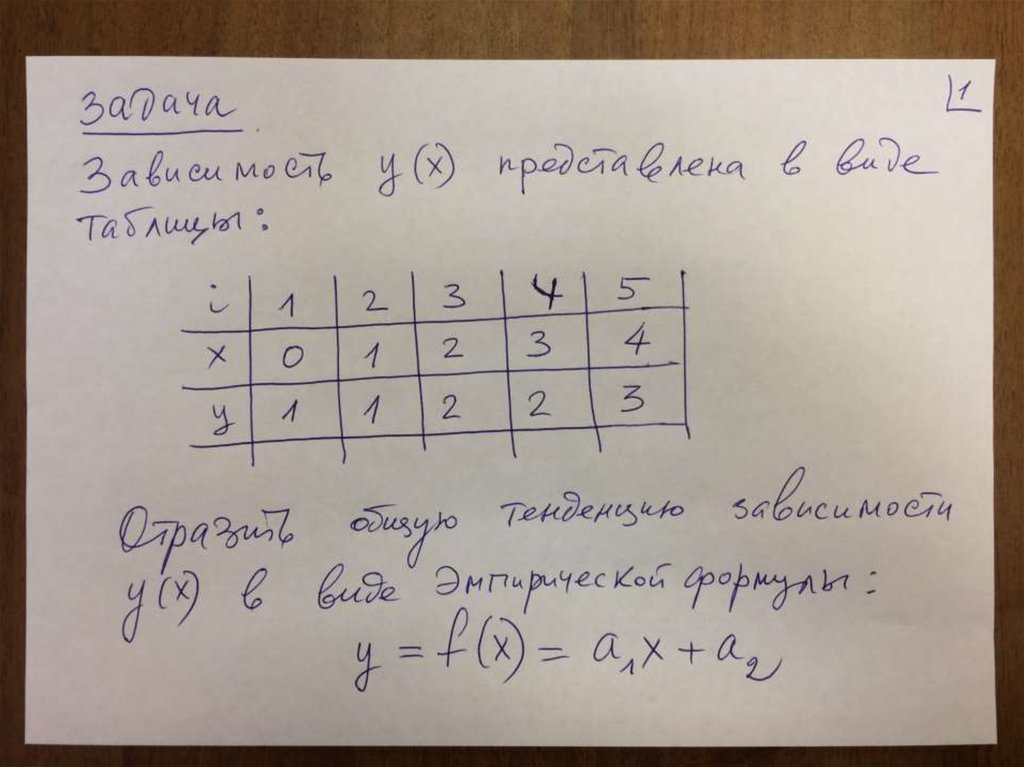 1
Задача
Зависимость y(x) представлена в виде
таблицы:
i 1 2 3 4 5
x 0 1 2 3 4
y 1 1 2 2 3
Отразить общую тенденцию зависимости
y(x) в виде эмпирической формулы:
y = f(x) = a₁x + a₂